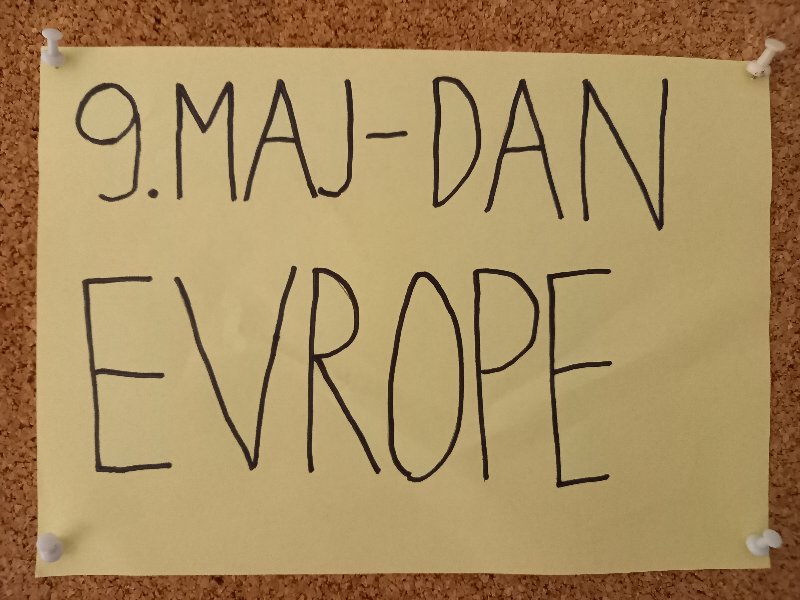 9. MAJ - DAN
EVROPE